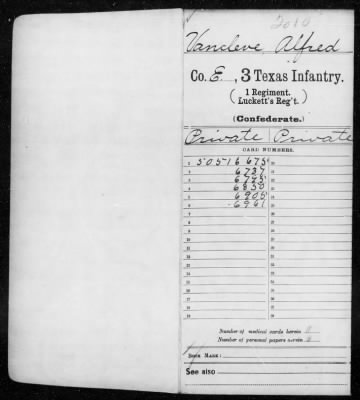 2010
Vancleve Alfred
Co. E, 3 Texas Infantry.
1 Regiment.
Luckett's Reg't.
(Confederate.)
Private | Private
CARD NUMBERS.
1 50516675 20
2 6737 21
3 6795 22
4 6850 23
5 6905 24
6 6961 25
7 26
8 27
9 28
10 29
11 30
12 31
13 32
14 33
15 34
16 35
17 36
18 37
19 38
Number of medical cards herein 0
Number of personal papers herein 0
BOOK MARK:
See also